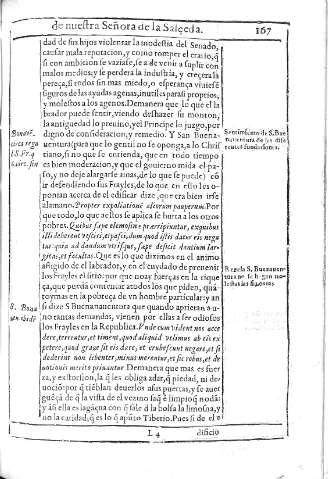 de nuestra Señora de la Salceda. 167
dad de sus hijos violentar la modestia del Senado,
causar mala reputacion, y como romper el erario, q̃
si con ambicion se vaziase, se a de venir a suplir con
malos medios; y se perdera la industria, y crecera la
pereça, si en dos sin mas miedo, o esperança viviesẽ
siguros de las ayudas agenas, inutiles para si proprios,
y molestos a los agenos. Demanera que lo que el la
brador puede sentir, viendo deshazer su monton,
la antiguedad lo preuino, y el Principe lo juzgo, por
digno de consideracion, y remedio. Y San Buena-
uentura (para que lo gentil no se oponga, a lo Chris
tiano, si no que se entienda, que en todo tiempo
es bien moderacion, y que el gouierno mida el pas-
so, y no deje alargarse ainas, de lo que se puede) cõ
ir defendiendo sus Frayles, de lo que en esto les o-
ponian acerca de el edificar dize, que era bien irse
a la mano. Propter expoliationē aliorum pauperum. Por
que todo, lo que a estos se aplica se hurta a los otros
pobres. Quibus sæpe elemosinæ præripiuntur, exquibus
illi deberent vestiri, et pasci, dum quod istis datur eis nega
tur: quia ad dandum utrisque, sæpe deficit dantium lar-
gitas, et facultas. Que es lo que diximos en el animo
afligido de el labrador, y en el cuydado de preuenir
los Frayles el sitio: por que no ay fuerças en la rique
ça, que pueda continuar a todos los que piden, quã
to y mas en la pobreça de vn hombre particular: y an
si dize S Buenauentura que quando aprieran a v-
no tantas demandas, vienen por ellas a ser odiosos
los Frayles en la Republica. Vnde cum vident nos acce
dere, terrentur, et timent, quod aliquid velimus ab eis ex
petere, quod graue sit eis dare, et erubescunt negare, et si
dederint non libenter, minus merentur, et sic robur, et de
uotionis merito priuantur Demanera que mas es fuer
ça, y extorsion, la q̃ les obliga a dar, q̃ piedad, ni de-
uociõ: por q̃ tiẽblan de verlos a sus puertas, y se auer
guẽçã de q̃ la vista de el vezino saq̃ ẽ limpio q̃ nodã:
y ãsi ella es la gãçua con q̃ sale d la bolsa la limosna, y
no la caridad, q̃ es lo q̃ apũto Tiberio. Pues si de el e-
L 4 dificio
Sentimiento de S. Bue
S. Buena